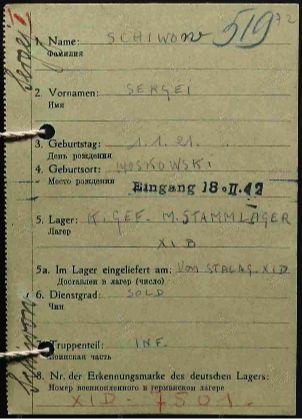 519 72
1. Name: SCHIWOW
Фамилия
2. Vornamen: SERGEI
Имя
3. Geburtstag: 1.1.21.
День рождения
4. Geburtsort: MOSKOWSKI
Место рождения
Eingang 18.II.42
5. Lager: K.GEF. M.STAMMLAGER
Лагер
XI B
5a. Im Lager eingeliefert am: Vom STALAG XI D.
Доставлен в лагер (число)
6. Dienstgrad: SOLD
Чин
7. Truppenteil: INF.
Воинская часть
8. Nr. der Erkennungsmarke des deutschen Lagers:
Номер военнопленного в германском лагере
XID
Sergei